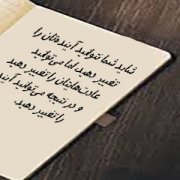 شاید شما نتوانید آینده‌تان را
تغییر دهید، اما می‌توانید
عادت‌هایتان را تغییر دهید
و در نتیجه می‌توانید آینده
را تغییر دهید.